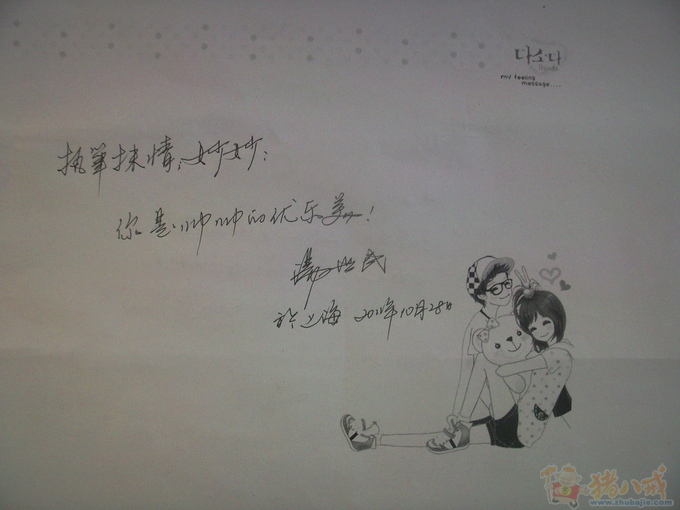 나오나
my feeling
message....
执笔抹情,妙妙:
你是帅帅的优乐美!
世民
於上海 2011年10月28日
猪八戒
www.zhubajie.com